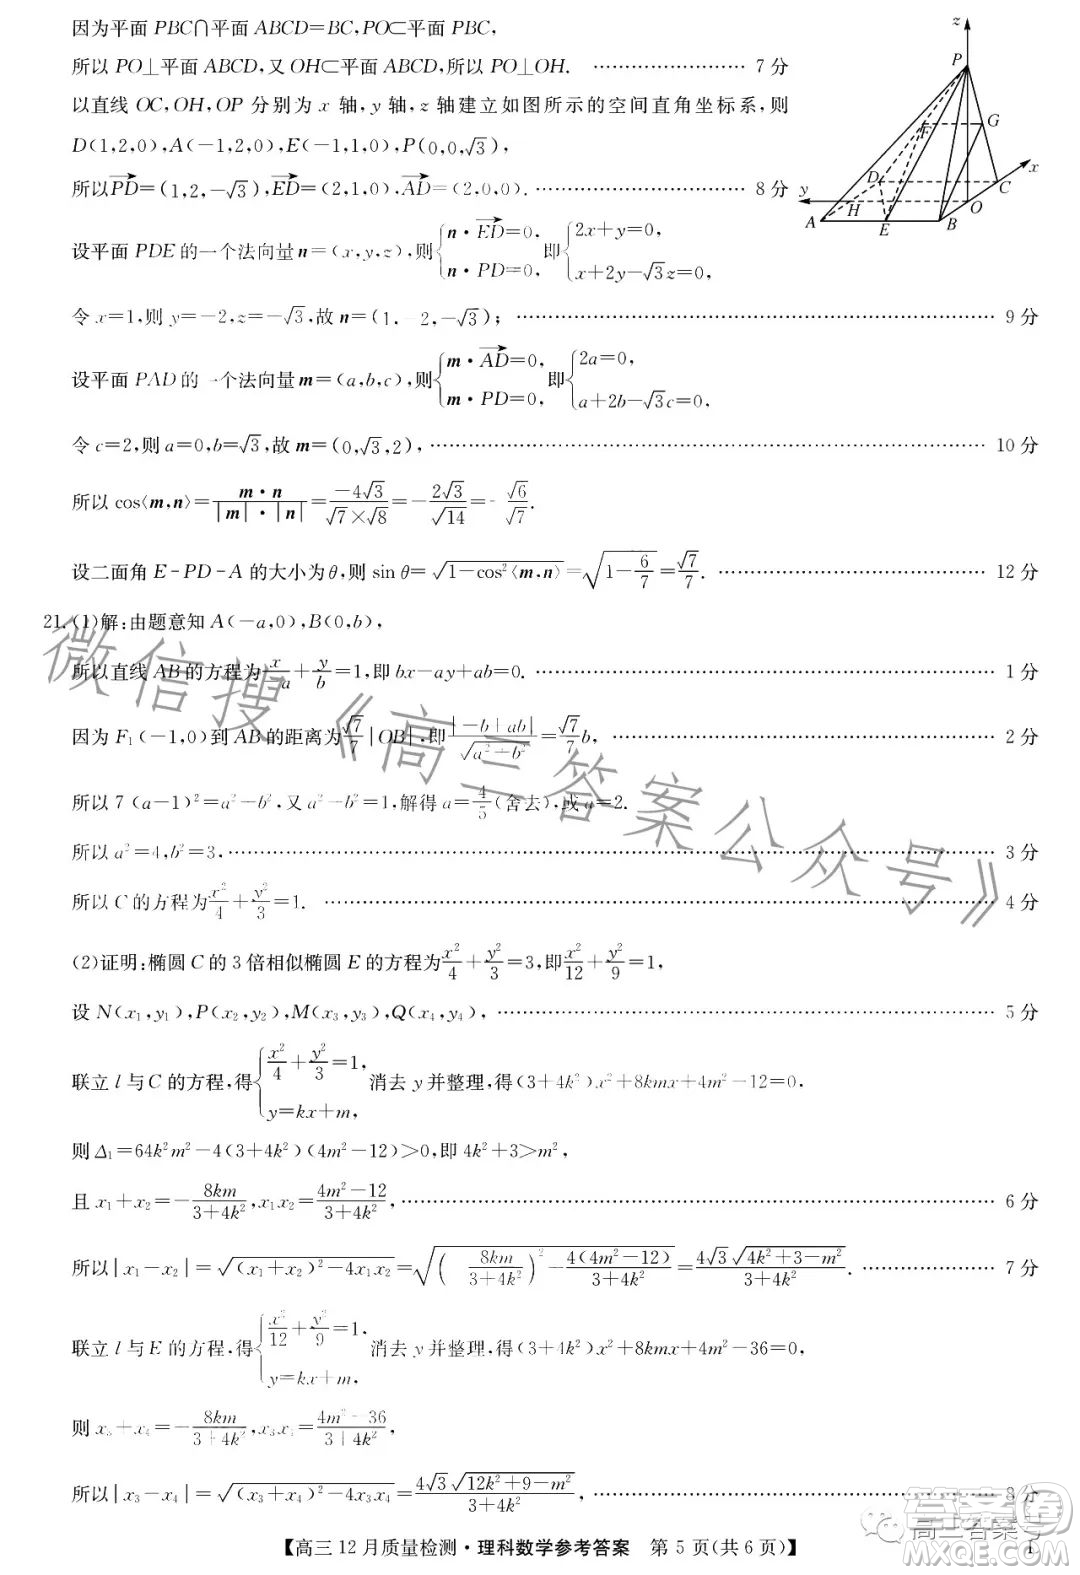 因为平面 PBC∩平面 ABCD=BC,PO⊂平面 PBC,
所以 PO⊥平面 ABCD,又 OH⊂平面 ABCD,所以 PO⊥OH. …… 7 分
以直线 OC,OH,OP 分别为 x 轴,y 轴,z 轴建立如图所示的空间直角坐标系,则
D(1,2,0),A(-1,2,0),E(-1,1,0),P(0,0,√3),
所以PD=(1,2,-√3),ED=(2,1,0).AD=(2,0,0). …… 8 分
设平面 PDE 的一个法向量 n=(x,y,z),则{n·ED=0, n·PD=0, 即{2x+y=0, x+2y-√3z=0,
令 x=1,则 y=-2,z=-√3,故 n=(1,-2,-√3); …… 9 分
设平面 PAD 的一个法向量 m=(a,b,c),则{m·AD=0, m·PD=0, 即{2a=0, a+2b-√3c=0,
令 c=2,则 a=0,b=√3,故 m=(0,√3,2), …… 10 分
所以 cos⟨m,n⟩=m·n/|m|·|n|=-4√3/√7×√8=-2√3/√14=-√6/√7.
设二面角 E-PD-A 的大小为θ,则 sin θ=√1-cos²⟨m,n⟩=√1-6/7=√7/7. …… 12 分
z
P
F
G
x
D
C
y
H
O
A
E
B
21.(1)解:由题意知 A(-a,0),B(0,b),
所以直线 AB 的方程为x/-a+y/b=1,即 bx-ay+ab=0. …… 1 分
因为 F₁(-1,0)到 AB 的距离为√7/7|OB|,即|-b+ab|/√a²+b²=√7/7b, …… 2 分
所以 7(a-1)²=a²+b²,又 a²-b²=1,解得 a=4/5(舍去),或 a=2.
所以 a²=4,b²=3, …… 3 分
所以 C 的方程为x²/4+y²/3=1. …… 4 分
(2)证明:椭圆 C 的 3 倍相似椭圆 E 的方程为x²/4+y²/3=3,即x²/12+y²/9=1,
设 N(x₁,y₁),P(x₂,y₂),M(x₃,y₃),Q(x₄,y₄), …… 5 分
联立 l 与C 的方程,得{x²/4+y²/3=1, y=kx+m, 消去 y 并整理,得(3+4k²)x²+8kmx+4m²-12=0,
则 Δ₁=64k²m²-4(3+4k²)(4m²-12)>0,即 4k²+3>m²,
且 x₁+x₂=-8km/3+4k²,x₁x₂=4m²-12/3+4k², …… 6 分
所以|x₁-x₂|=√(x₁+x₂)²-4x₁x₂=√(-8km/3+4k²)²-4(4m²-12)/3+4k²=4√3√4k²+3-m²/3+4k². …… 7 分
联立 l 与E 的方程,得{x²/12+y²/9=1, y=kx+m, 消去 y 并整理,得(3+4k²)x²+8kmx+4m²-36=0,
则 x₃+x₄=-8km/3+4k²,x₃x₄=4m²-36/3+4k²,
所以|x₃-x₄|=√(x₃+x₄)²-4x₃x₄=4√3√12k²+9-m²/3+4k². …… 8 分
【高三 12 月质量检测·理科数学参考答案 第 5 页(共 6 页)】
微信搜《高三答案公众号》
高三答案号
答案圈
MXQE.COM